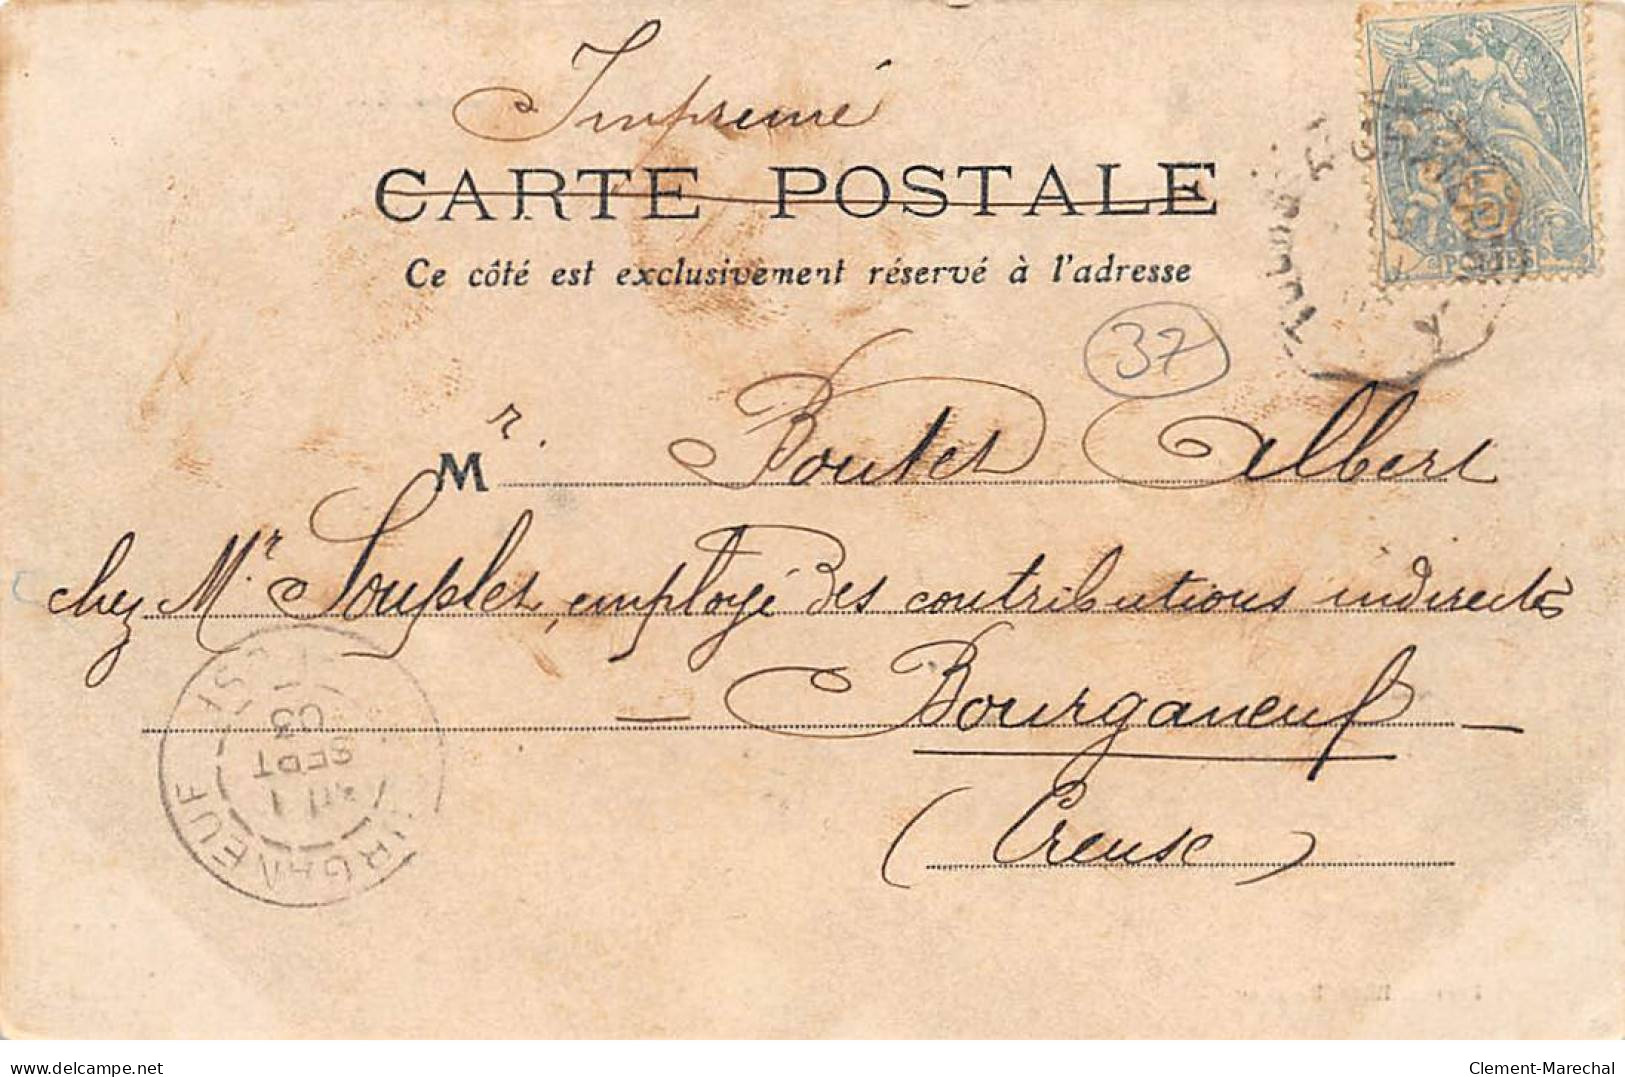 Imprimé
CARTE POSTALE
Ce côté est exclusivement réservé à l'adresse
37
Mr. Boutet Albert
chez Mr Souplet, employé des contributions indirectes
— Bourganeuf —
(Creuse)
5
POSTES
BOURGANEUF
1
SEPT
03
delcampe.net
Clement-Marechal